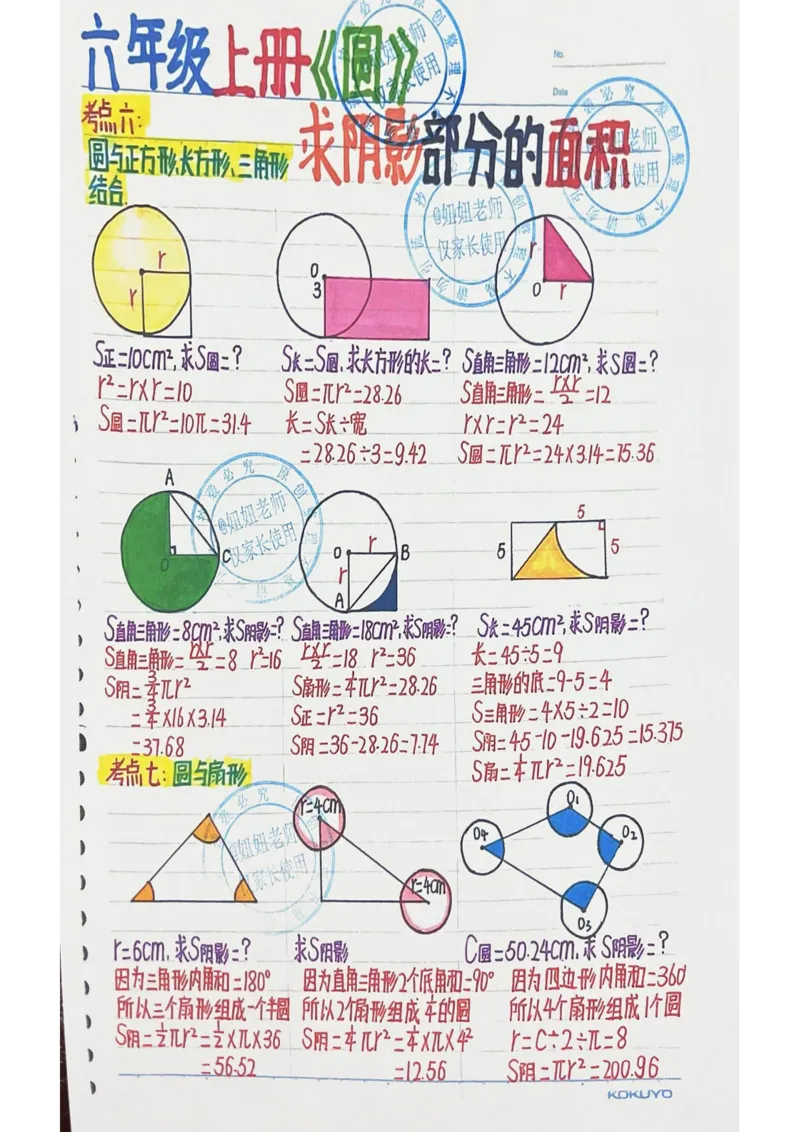 六年级上册《圆》
No.
Date
考点六:
求阴影部分的面积
圆与正方形、长方形、三角形
结合
r
r
O
3
r
O
r
S正=10cm², 求S圆=?
r²=r×r=10
S圆=πr²=10π=31.4
S长=S圆, 求长方形的长=?
S圆=πr²=28.26
长=S长÷宽
=28.26÷3=9.42
S直角三角形=12cm², 求S圆=?
S直角三角形=r×r/2=12
r×r=r²=24
S圆=πr²=24×3.14=75.36
A
O
C
O
r
B
r
A
5
5
5
S直角三角形=8cm²,求S阴影=?
S直角三角形=r×r/2=8 r²=16
S阴=3/4πr²
=3/4×16×3.14
=37.68
S直角三角形=18cm²,求S阴影=?
r×r/2=18 r²=36
S扇形=1/4πr²=28.26
S正=r²=36
S阴=36-28.26=7.74
S长=45cm²,求S阴影=?
长=45÷5=9
三角形的底=9-5=4
S三角形=4×5÷2=10
S阴=45-10-19.625=15.375
S扇=1/4πr²=19.625
考点七:圆与扇形
r=4cm
r=4cm
O1
O2
O3
O4
r=6cm, 求S阴影=?
因为三角形内角和=180°
所以三个扇形组成一个半圆
S阴=1/2πr²=1/2×π×36
=56.52
求S阴影
因为直角三角形2个底角和=90°
所以2个扇形组成1/4的圆
S阴=1/4πr²=1/4×π×4²
=12.56
C圆=50.24cm, 求S阴影=?
因为四边形内角和=360°
所以4个扇形组成1个圆
r=C÷2÷π=8
S阴=πr²=200.96
KOKUYO
@妞妞老师
仅家长使用